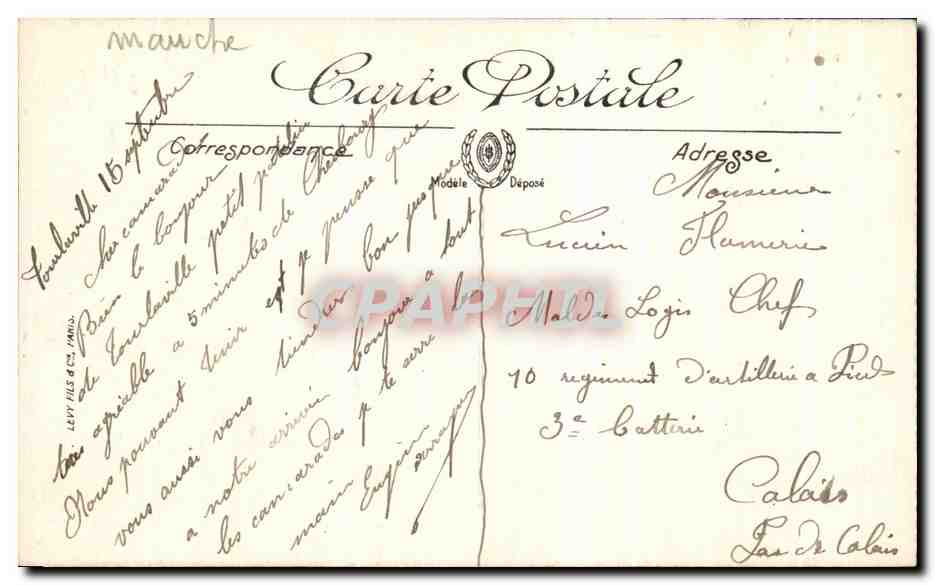 manche
Carte Postale
Correspondance
Adresse
Modèle Déposé
LEVY FILS & Cie, PARIS.
Tourlaville 15 septembre
Cher camarade
Bien le bonjour
de Tourlaville petit patelin
très agréable a 5 minutes de Cherbourg
Nous pouvont tenir et je pense que
vous aussi vous tiendrez bon jusque
a notre arrivée bonjour a tout
les camarades je te serre la
main Eugène
Monsieur
Lucien Flamerie
Mal des Logis Chef
10 regiment d'artillerie a Pied
3e batterie
Calais
Pas de Calais
CPAPHIL